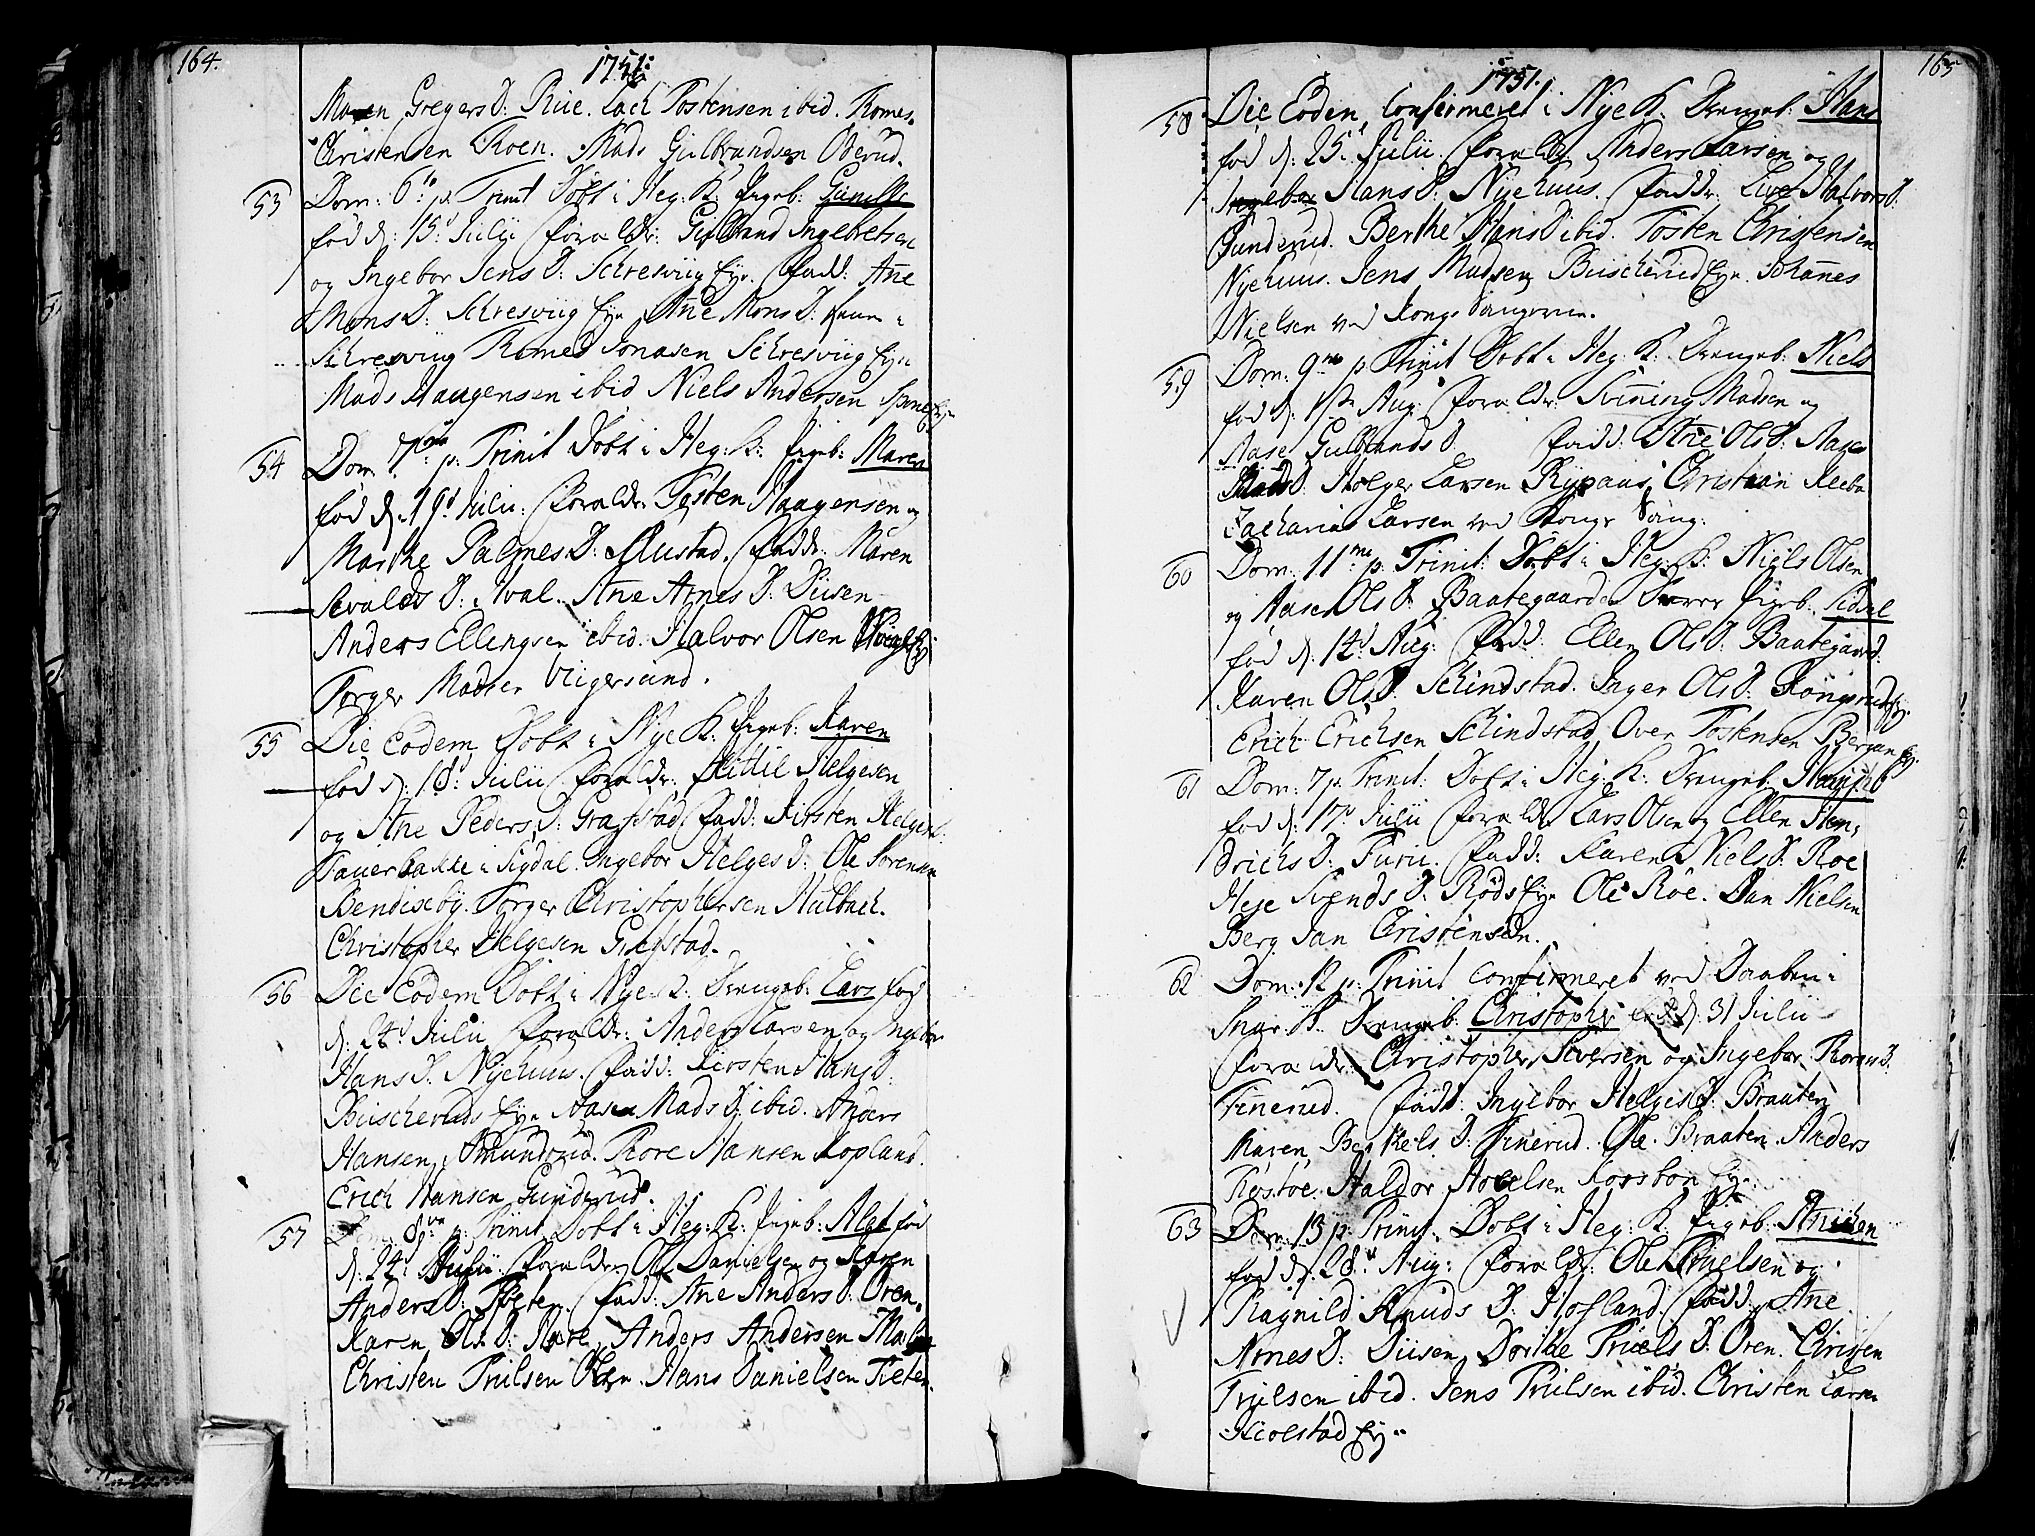 164.
1751.
Maren Gregers D: Rue. Lach Tostensen ibid. Tomes
Christensen Roen. Mads Gulbrandsen Oderud.
53 Dom: 6ta p. Trinit Döbt i Heg: K: Pigeb: Gunille
fød d: 15d Julii. Forældr: Gulbrand Ingebretsen
og Ingebor Jens D: Schresviig Eje. Fadd: Añe
Mons D: Schresviig Eje Añe Mons D:
Schresviig Tomes Jonasen Schresviig Eje
Mads Haagensen ibid Niels Andersen
54 Dom: 7ma p. Trinit Döbt i Heg: K: Pigeb: Maren
fød d: 19d Julii. Forældr Tosten Haagensen og
Marthe Palmes D: Rustad. Fadd: Maren
Sevalds D: Hval. Ane Arnes D: Diisen
Anders Ellengsen ibid. Halvor Olsen
Torger Madsen Vigersund.
55 Die Eodem Döbt i Nye K: Pigeb: Karen
fød d: 18d Julii. Forældr. Kittil Helgesen
og Ane Peders D: Gragstad. Fadd: Kirsten Helges D.
i Sigdal. Ingebor Helges D: Ole Sorensen
Bendiseby. Torger Christophersen
Christopher Helgesen Gragstad.
56 Die Eodem Döbt i Nye K: Drengeb: Lars fød
d: 24d Julii Forældr: Anders Larsen og Ingebor
Hans D: Nyehuus. Fadd: Kirsten Hans D:
Buscheruds Eje Aase Mads D: ibid. Anders
Hansen Amundrud. Tore Hansen Kopland.
Erich Hansen Gunderud.
57 Dom: 8va p. Trinit. Döbt i Heg: K: Pigeb: Alet fød
d: 24d Julii Forældr. Ole Danielsen og Karen
Anders D: Fieten. Fadd: Ane Anders D: Oren.
Karen Ols D: Anders Andersen
Christen Trulsen Oren. Hans Danielsen Fieten.
165
1751.
58 Die Eodem Confirmeret i Nye K: Drengeb: Hans
fød d: 25d Julii. Forældr Anders Larsen og
Ingebor Hans D: Nyehuus. Faddr: Live Halvors D.
Gunderud. Berthe Hans D ibid. Tosten Christensen
Nyehuus. Jens Madsen Buscherud Eje. Johañes
Nielsen ved Kongs
59 Dom: 9na p Trinit Döbt i Heg: K: Drengeb: Niels
fød d: 1ste Aug: Forældr: Svining Madsen og
Aase Gulbrands D. Fadd: Ane Ols D: Aase
Mads D. Holger Larsen Rypaas. Christian
Zacharias Larsen ved Kongs
60 Dom: 11ma p: Trinit: Döbt i Heg: K: Niels Olsen
og Aase Ols D: Baategaards Pigeb: Sidsel
fød d: 14d Aug: Fadd: Ellen Ols D: Baategaard.
Karen Ols D. Schindstad. Inger Ols D: Kongsrud
Erich Erichsen Schindstad Over Tostensen Bergan Ej.
61 Dom: 7 p. Trinit: Döbt i Heg: K: Drengeb:
fød d: 17d Julii Forældr Lars Olsen og Ellen Hen-
drichs D: Furu. Fadd: Karen Niels D: Roe
Hege Svends D: Röds Eje Ole Roe. Dan Nielsen
Berg Jan Christensen.
62 Dom: 12 p: Trinit Confirmeret ved Daaben i
Snar K: Drengeb: Christopher fød d: 31 Julii
Forældr: Christopher Siversen og Ingebor Thores D.
Finerud. Fadd: Ingebor Helges D: Braaten
Maren Berthels D: Finerud. Ole Braaten. Anders
Röstoe. Haldor Eje.
63 Dom: 13 p: Trinit. Döbt i Heg: K: Pigeb: Añichen
fød d: 28d Aug: Forældr: Ole Truelsen og
Ragnild Knuds D: Hofland. Fadd: Ane
Arnes D: Diisen Dorthe Truels D: Oren. Christen
Trulsen ibid. Jens Trulsen ibid. Christen Larsen
Skiolstad Ej.